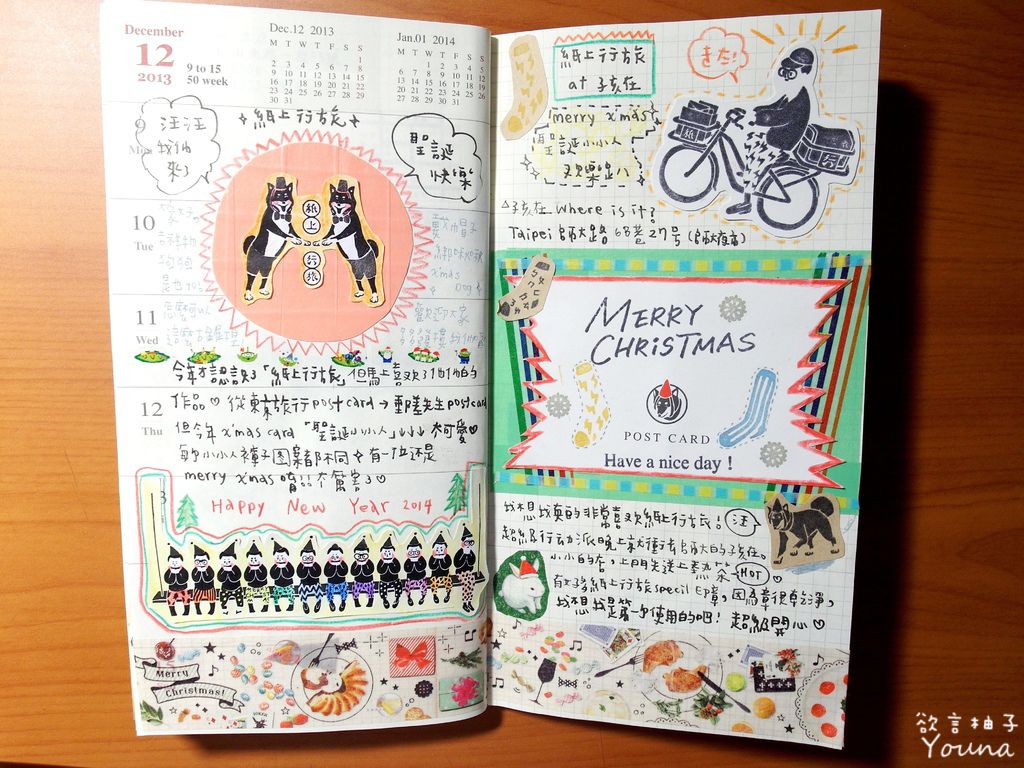 December
12
2013
9 to 15
50 week
Dec.12 2013
M T W T F S S
1
2 3 4 5 6 7 8
9 10 11 12 13 14 15
16 17 18 19 20 21 22
23 24 25 26 27 28 29
30 31
Jan.01 2014
M T W T F S S
1 2 3 4 5
6 7 8 9 10 11 12
13 14 15 16 17 18 19
20 21 22 23 24 25 26
27 28 29 30 31
9
汪汪
我們
來了
紙上行旅
聖誕
快樂
紙上
行旅
10
Tue
狗狗
x'mas
11
Wed
怎麼可以
歡迎大家
今年才認識「紙上行旅」但馬上喜歡了他們的
12
Thu
作品♡ 從東京旅行post card → 郵差先生post card
但今年 x'mas card「聖誕小小人」↓↓↓ 大可愛♡
每個小小人褲子圖案都不同 有一位還是
merry x'mas 唷!!! 太厲害了♡
Happy New Year 2014
Merry
Christmas!
紙上行旅
at 子孩在
merry x'mas
聖誕小小人
又歡樂趴
きた!
紙
行
△子孩在 Where is it?
Taipei 師大路 68巷27号 (師大夜市)
MERRY
CHRISTMAS
POST CARD
Have a nice day !
我想我真的非常喜欢紙上行旅! 汪
超級行动派晚上就衝去師大的子孩在。
小小的店,上門先送上熱茶 HOT
有好多紙上行旅specil印章,因為章很乾淨,
我想我是第一个使用的吧! 超級開心♡
欲言柚子
Youna